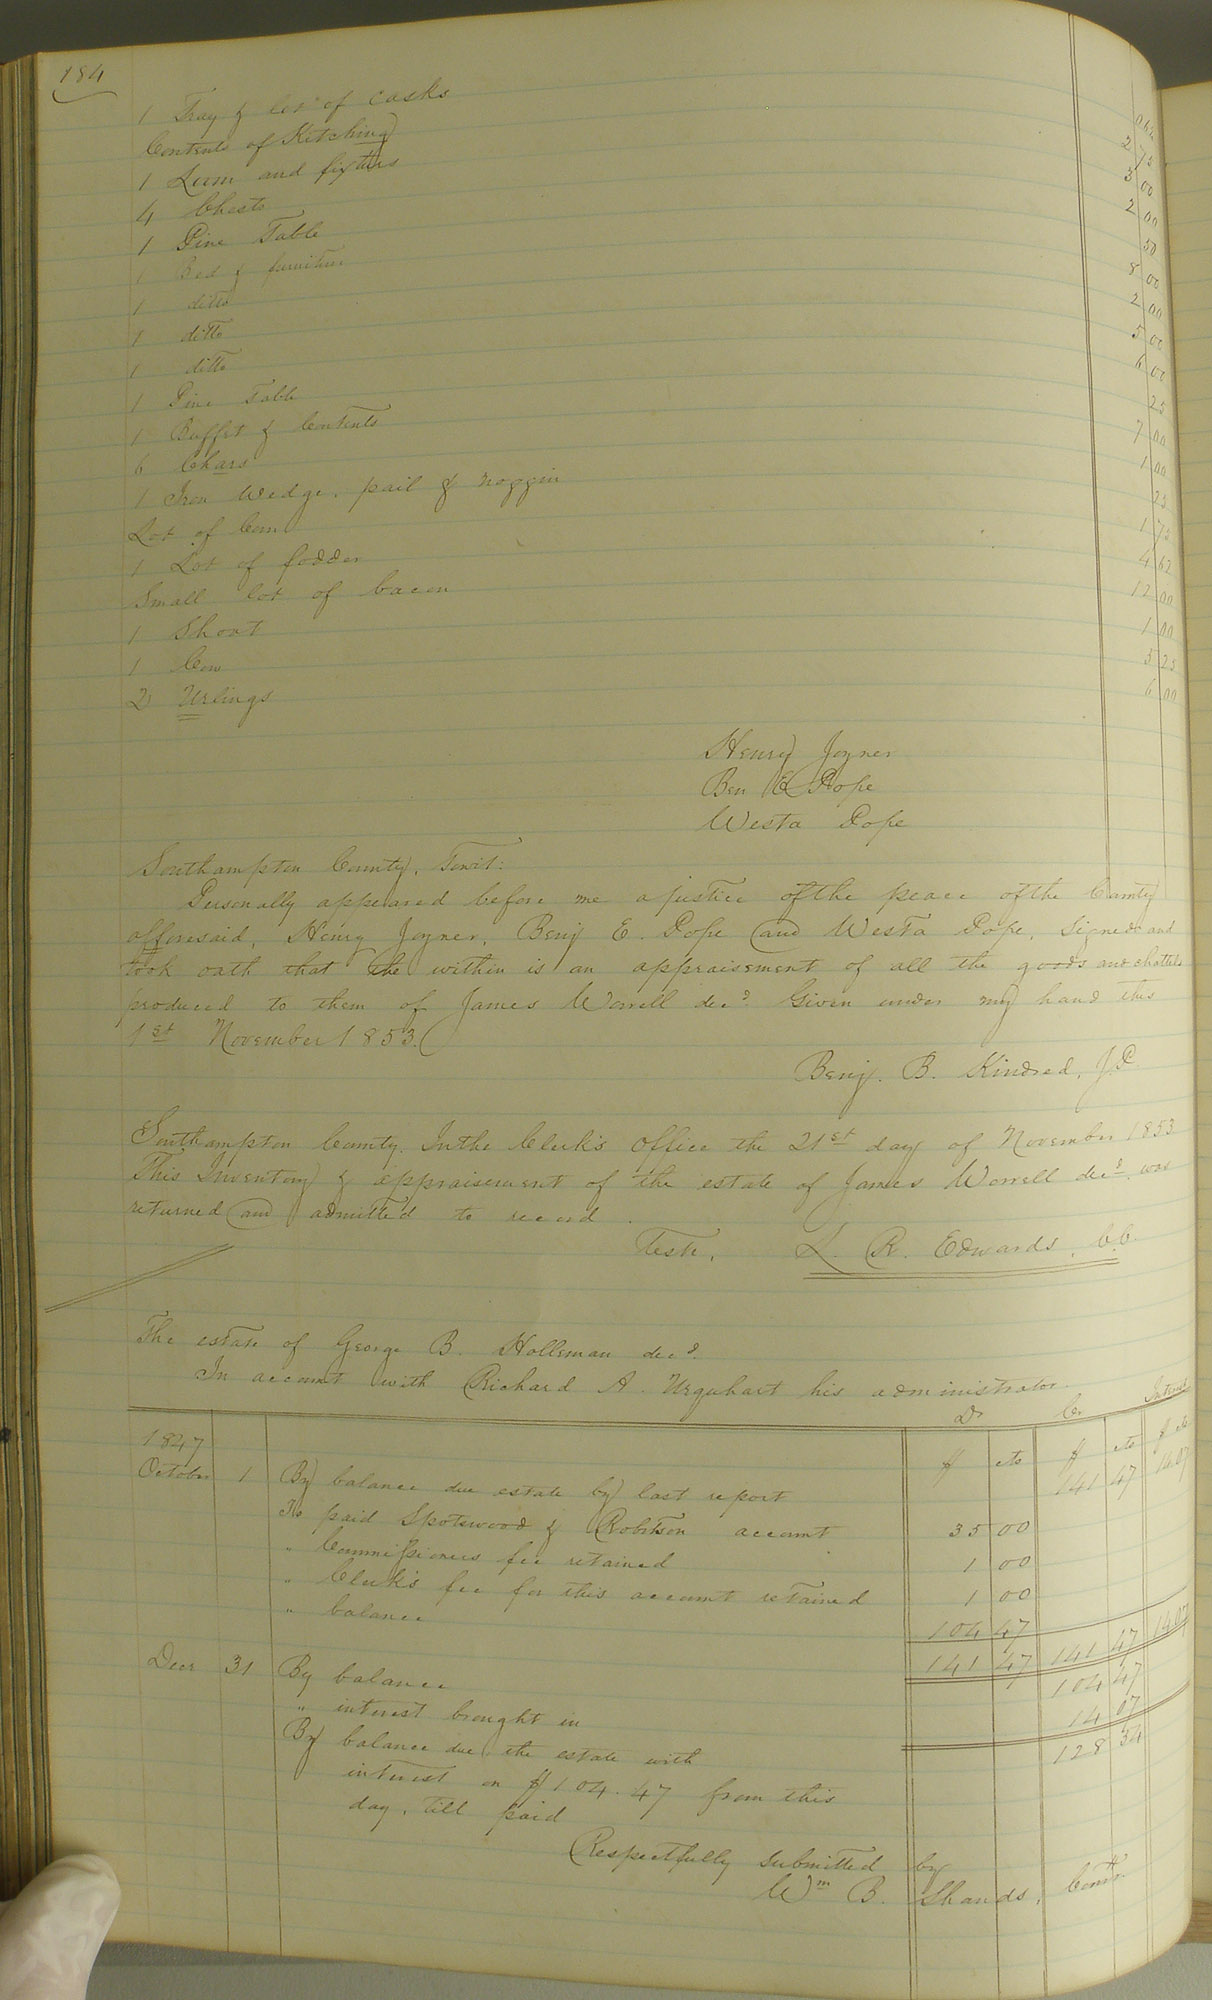 184
1 Tray & lot of casks
Contents of Kitching 2 75
1 Lum and fixturs 3 00
4 Chests 2 00
1 Pine Table 50
1 Bed & furniture 8 00
1 ditto 2 00
1 ditto 5 00
1 ditto 6 00
1 Pine Table 25
1 Buffet & Contents 7 00
6 Chars 1 00
1 Iron Wedge, pail & noggin 25
Lot of Corn 1 75
1 Lot of fodder 4 62
Small lot of bacon 12 00
1 Shoat 1 00
1 Cow 5 25
2 Urlings 6 00
Henry Joyner
Ben E Pope
Westa Pope
Southampton County, Towit:
Personally appeared before me a justice of the peace of the County
afforesaid, Henry Joyner, Benj E. Pope and Westa Pope, signed and
took oath that the within is an appraisement of all the goods and chattels
produced to them of James Worrell decd. Given under my hand this
1st November 1853.
Benj. B. Kindred, J.P.
Southampton County. In the Clerk's Office the 21st day of November 1853
This Inventory & appraisement of the estate of James Worrell decd. was
returned and admitted to record.
Teste, L. R. Edwards, C.C.
The estate of George B. Holleman decd.
In account with Richard A. Urquhart his administrator
Dr Cr Interest
1847 $ cts $ cts $ cts
October 1 By balance due estate by last report 141 47 14 07
To paid Spotswood & Robitson account 35 00
" Commissioners fee retained 1 00
" Clerk's fee for this account retained 1 00
" balance 104 47
141 47 141 47 14 07
Decr 31 By balance 104 47
" interest brought in 14 07
By balance due the estate with 128 54
interest on $104.47 from this
day, till paid
Respectfully submitted by
Wm B. Shands, Comr.